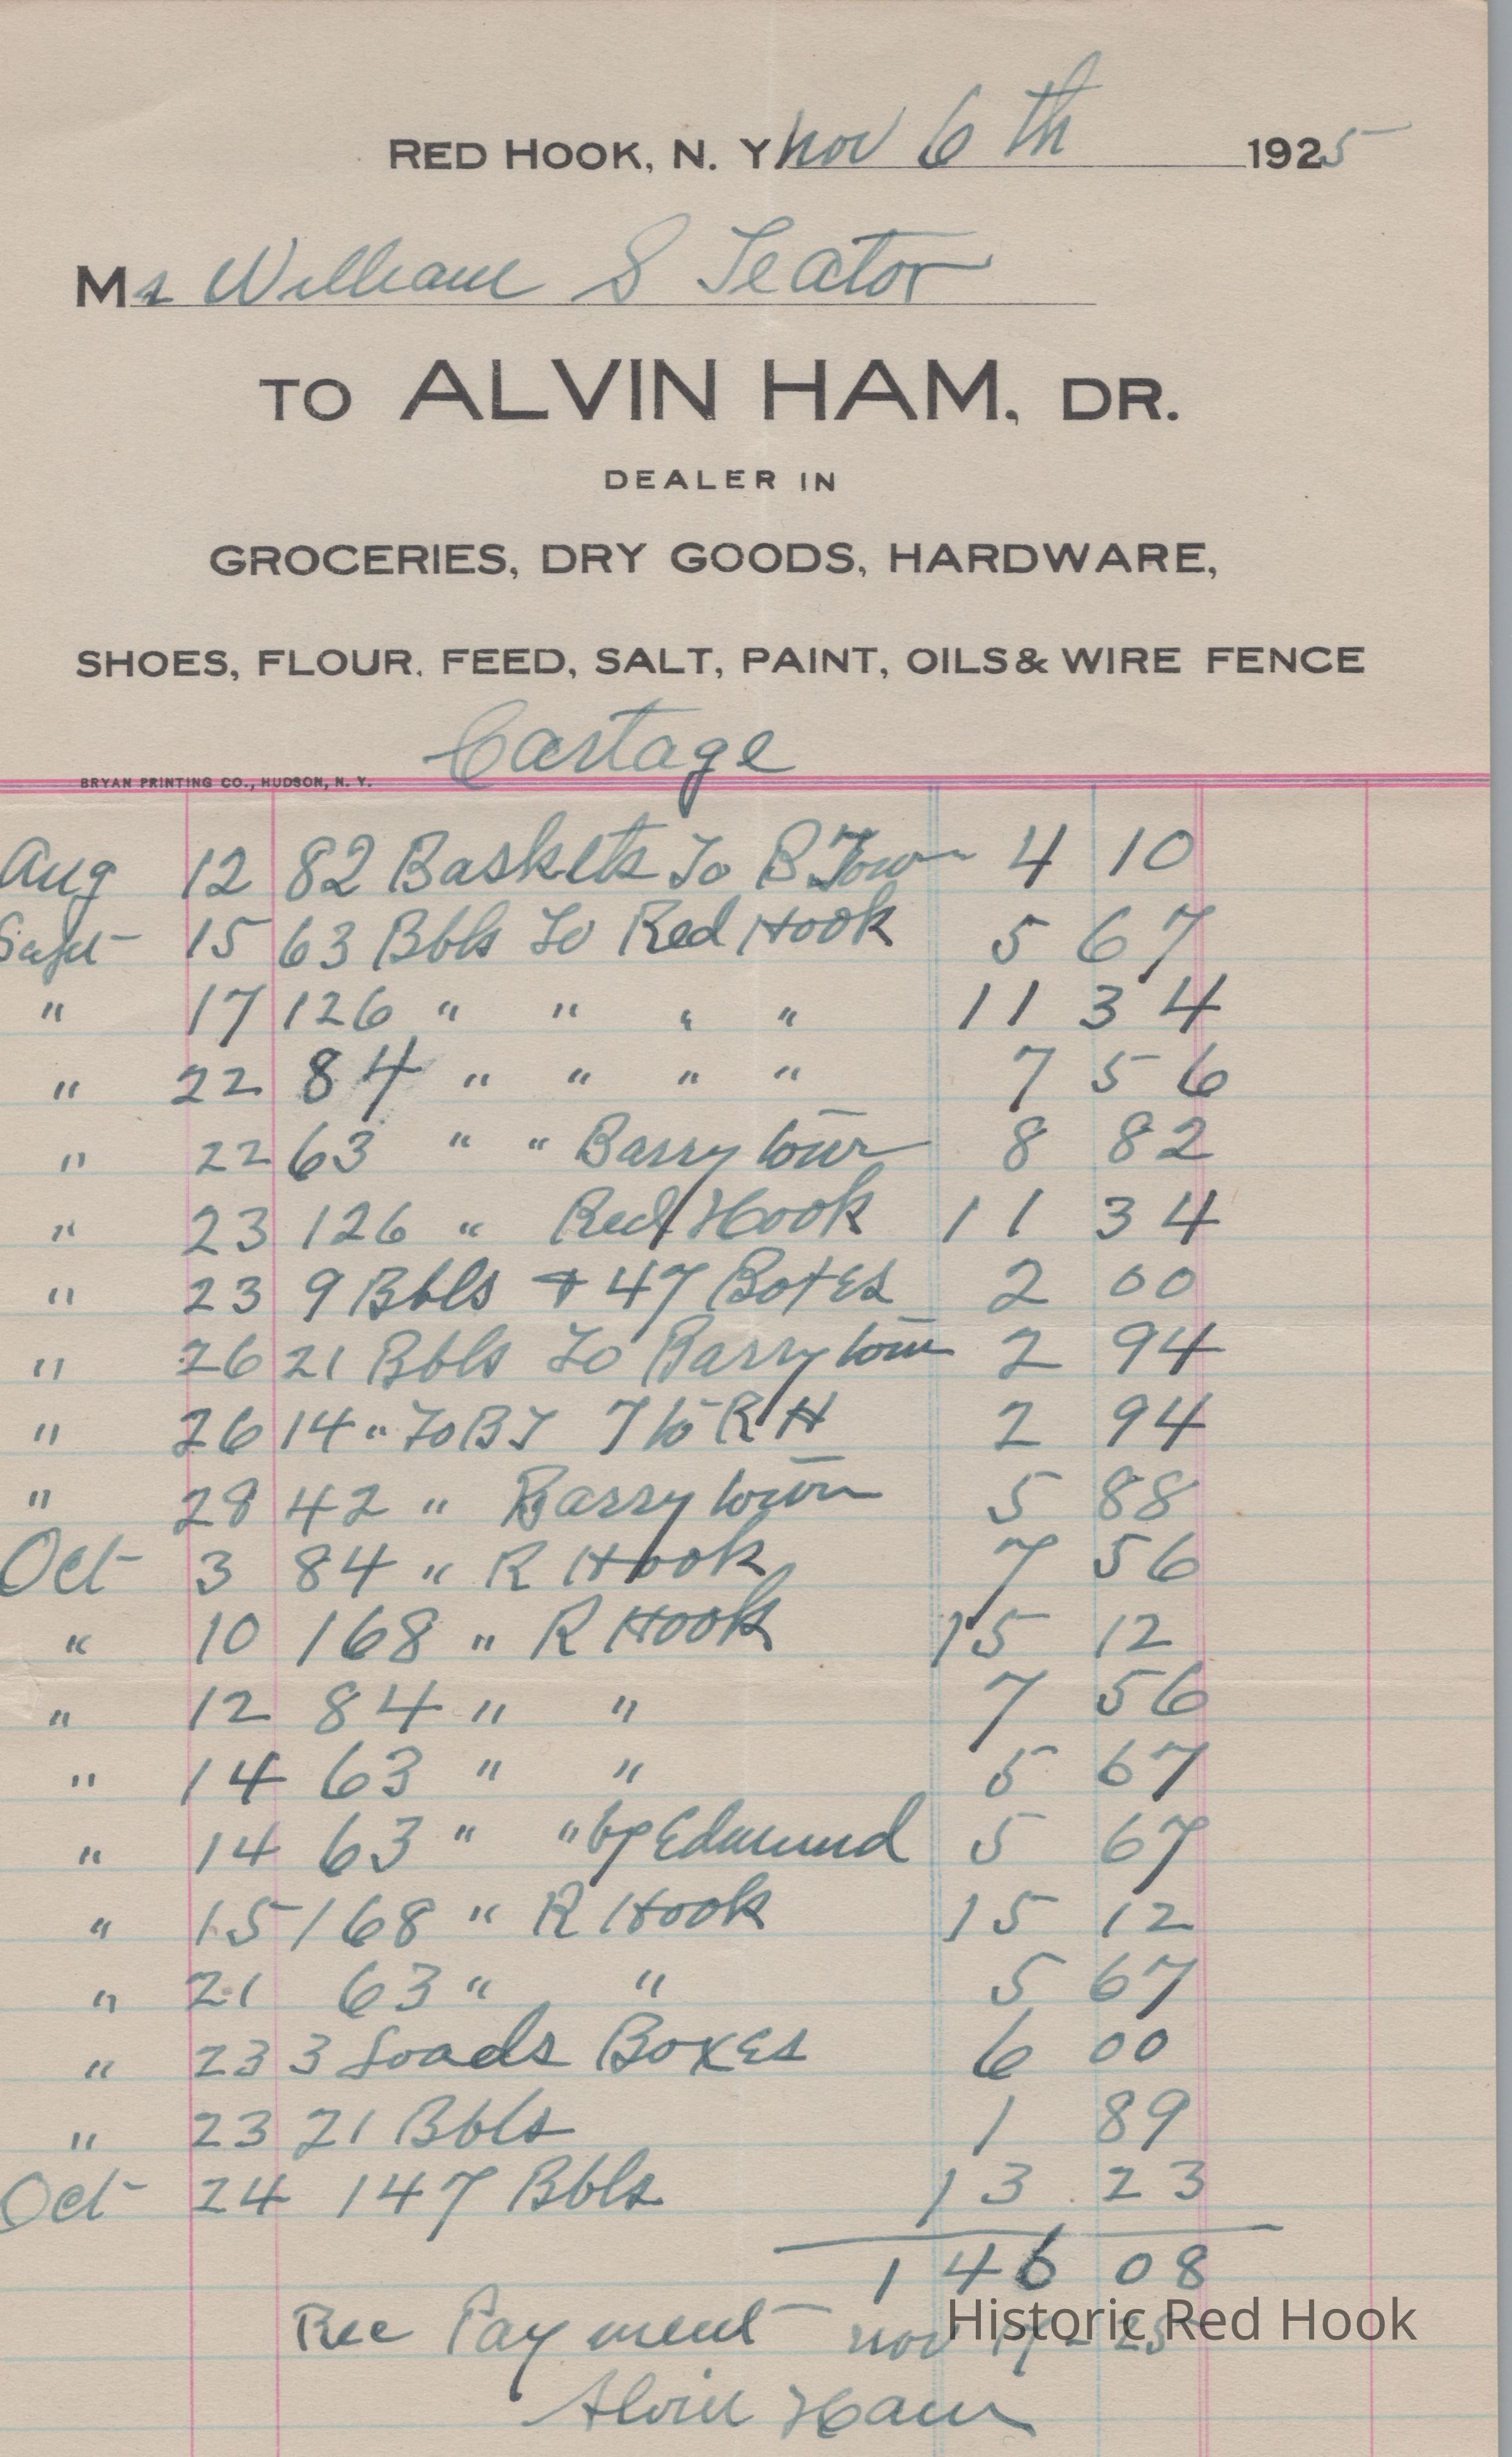 RED HOOK, N. Y Nov 6 th 1925
Mr William S Teator
TO ALVIN HAM, DR.
DEALER IN
GROCERIES, DRY GOODS, HARDWARE,
SHOES, FLOUR. FEED, SALT, PAINT, OILS & WIRE FENCE
Cartage
BRYAN PRINTING CO., HUDSON, N. Y.
Aug 12 82 Baskets To B Town 4 10
Sept 15 63 Bbls To Red Hook 5 67
" 17 126 " " " " 11 34
" 22 84 " " " " 7 56
" 22 63 " " Barrytown 8 82
" 23 126 " Red Hook 11 34
" 23 9 Bbls + 47 Boxes 2 00
" 26 21 Bbls To Barrytown 2 94
" 26 14 " To B T 7 to R H 2 94
" 28 42 " Barrytown 5 88
Oct 3 84 " R Hook 7 56
" 10 168 " R Hook 15 12
" 12 84 " " 7 56
" 14 63 " " 5 67
" 14 63 " " by Edmund 5 67
" 15 168 " R Hook 15 12
" 21 63 " " 5 67
" 23 3 Loads Boxes 6 00
" 23 21 Bbls 1 89
Oct 24 147 Bbls 13 23
146 08
Rec Payment Nov 25
Historic Red Hook
Alvin Ham